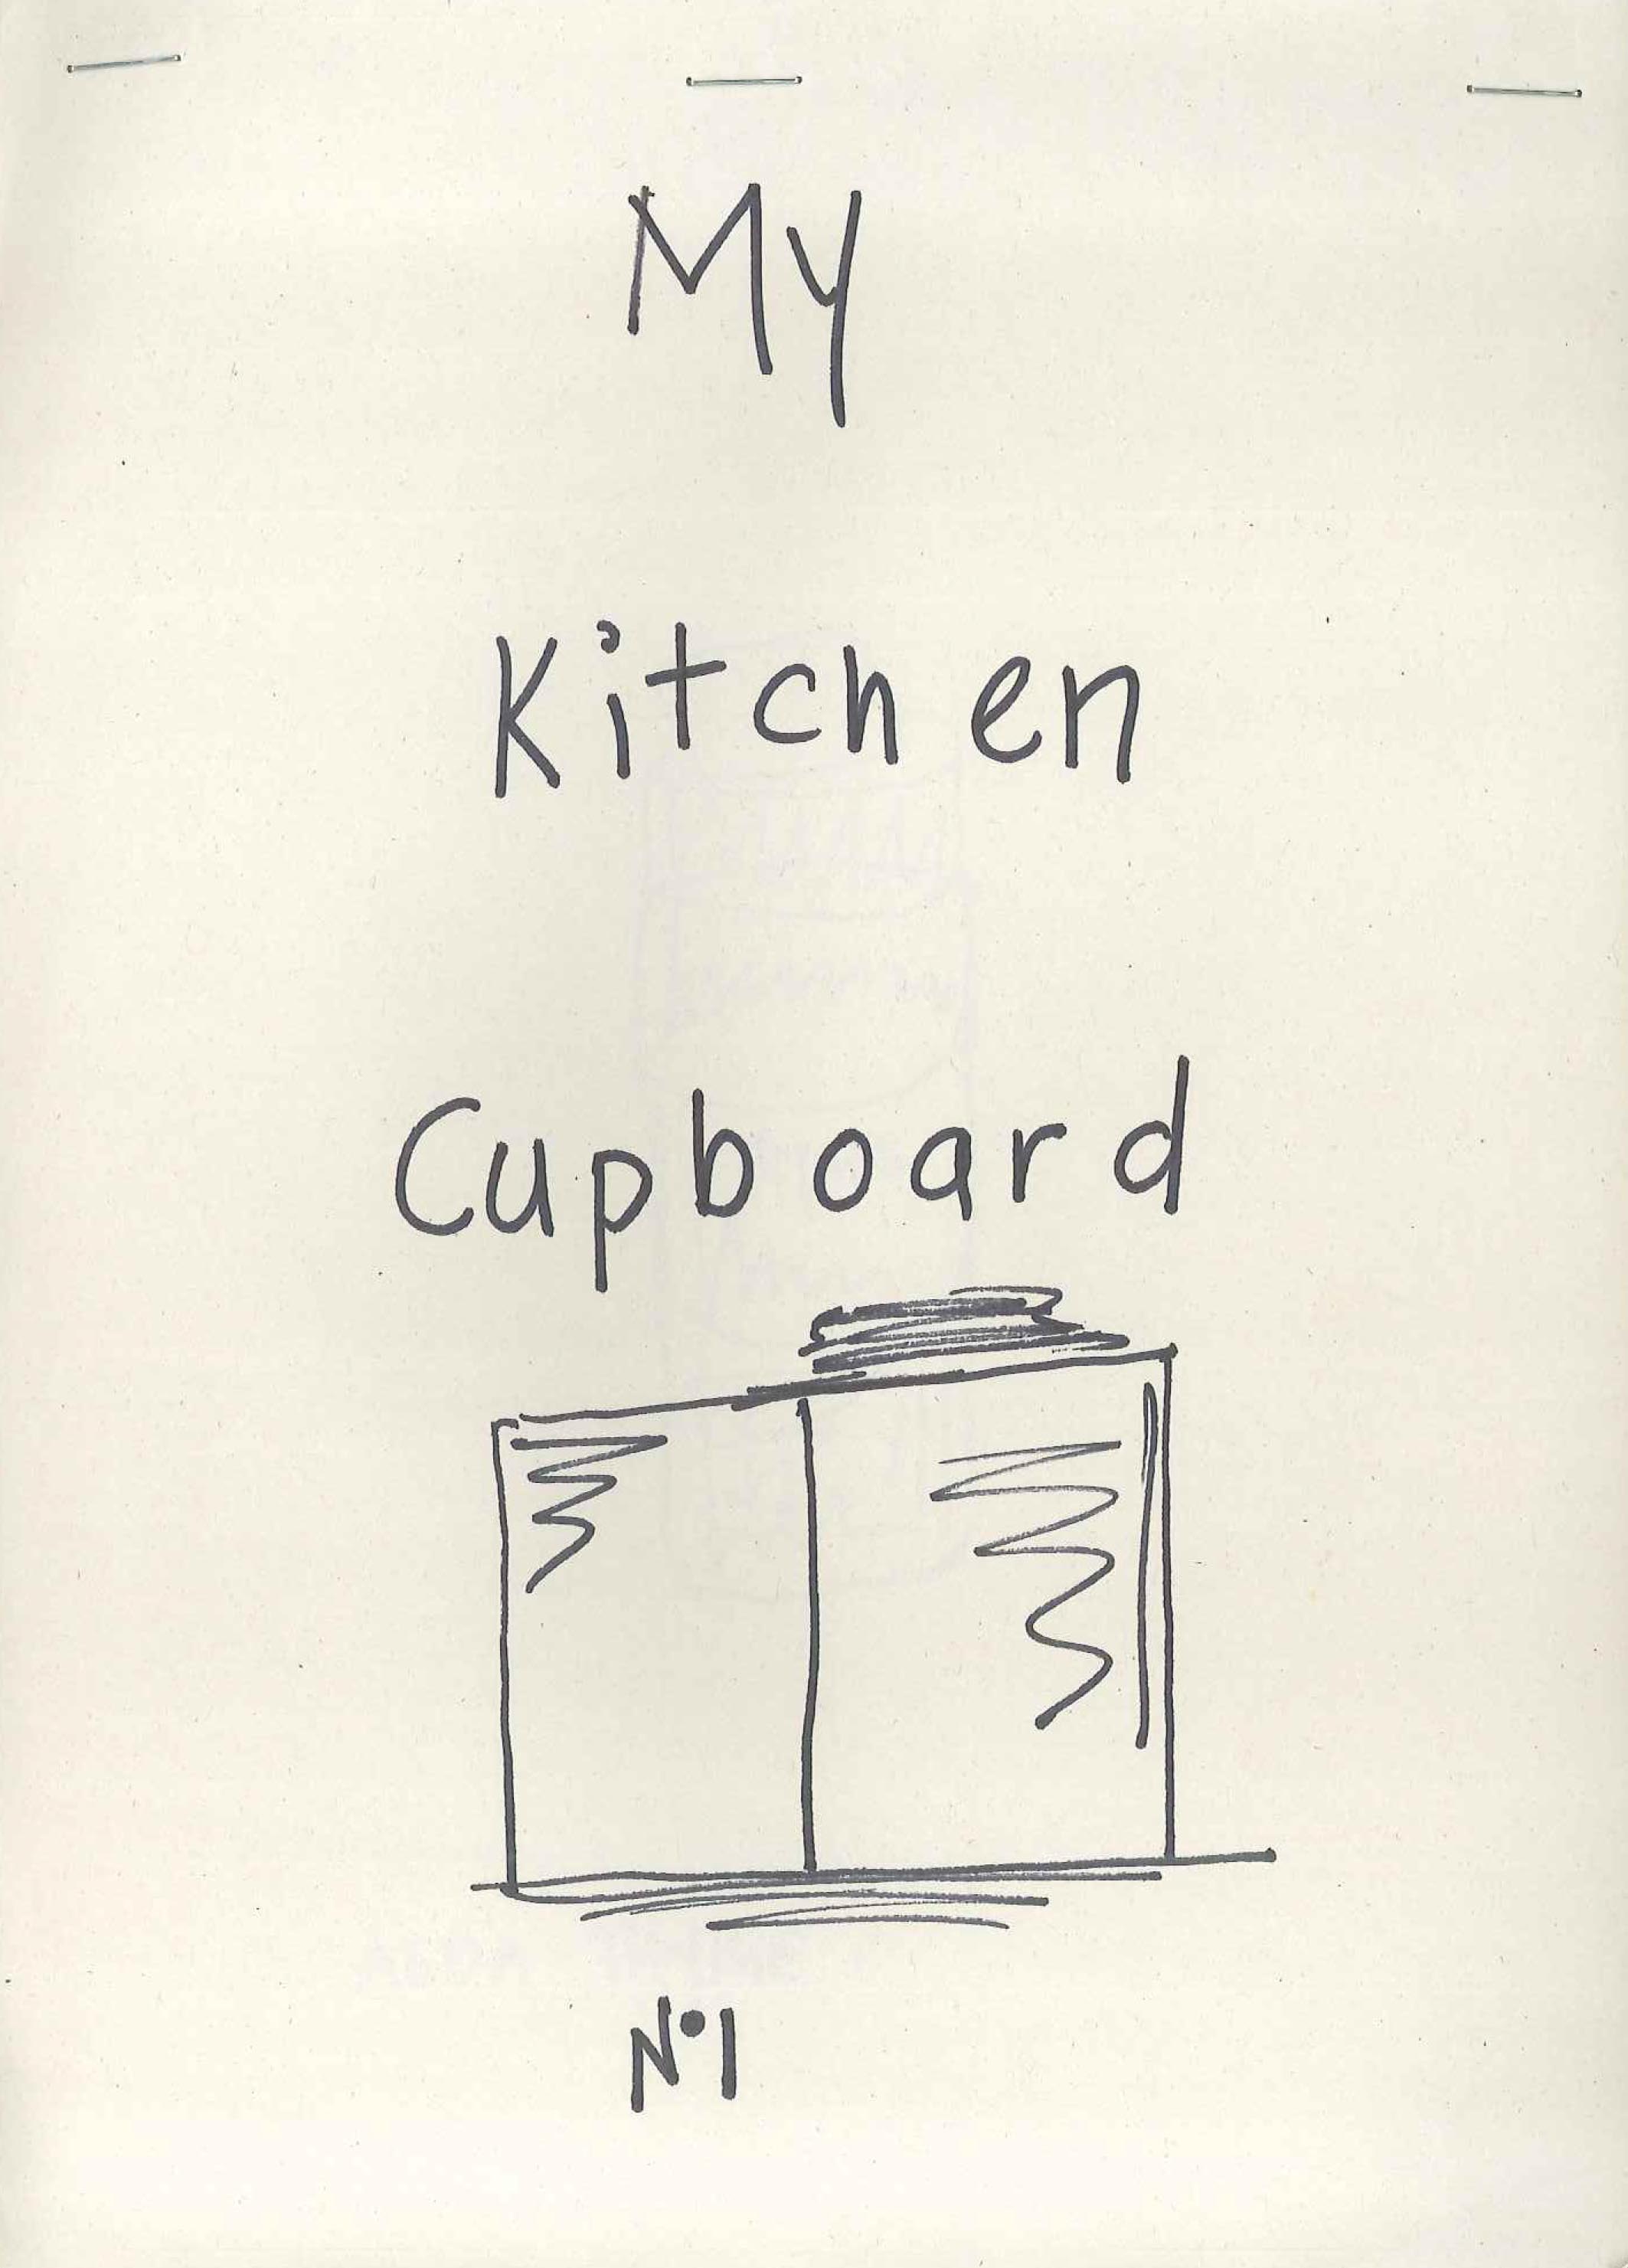 My
Kitchen
Cupboard
N°1